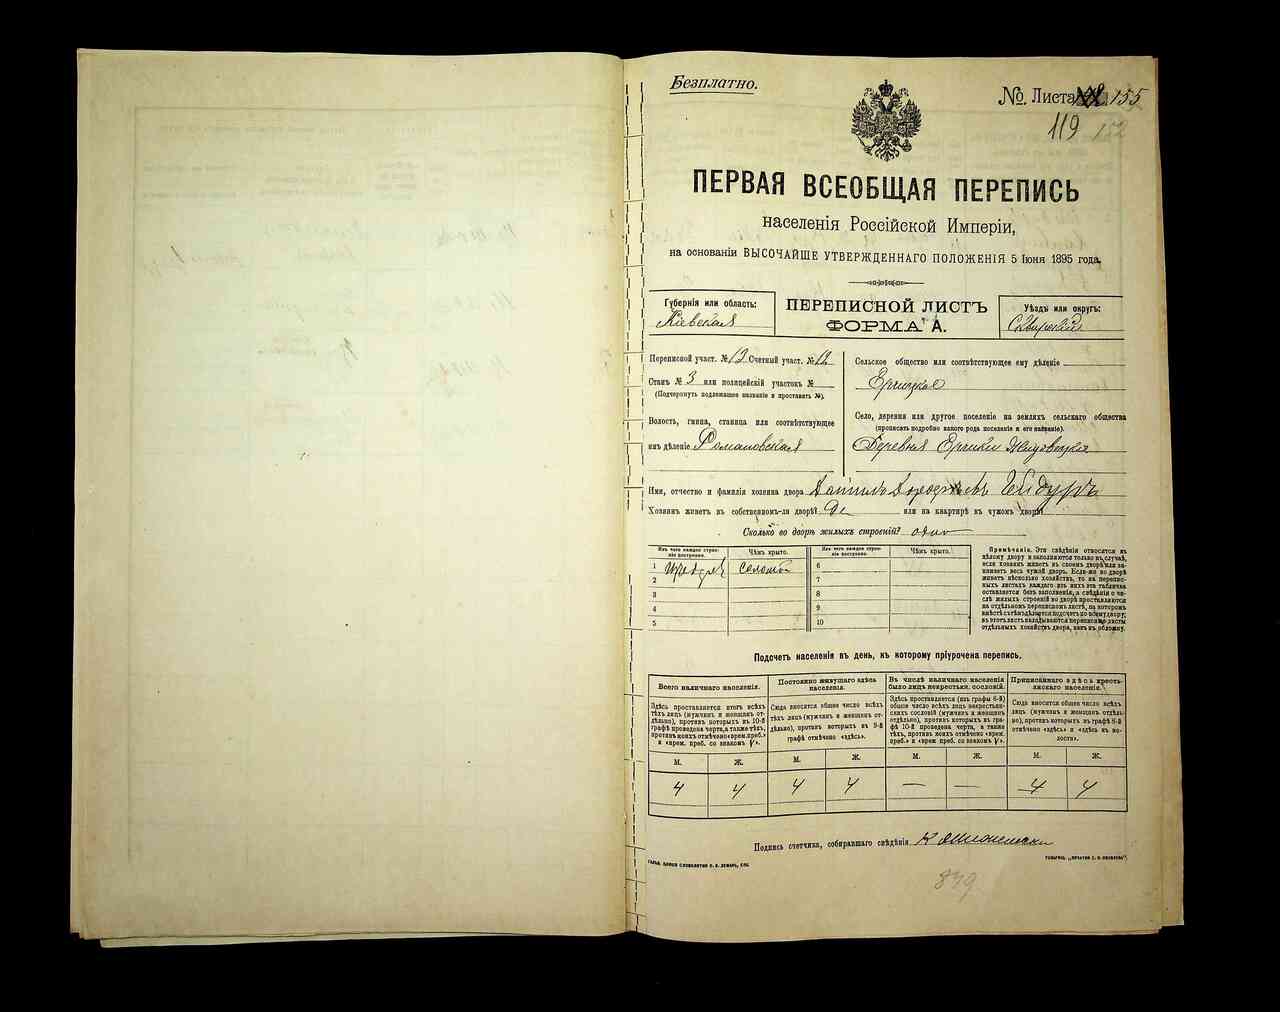 Безплатно.
№. Листа 155
119 152
ПЕРВАЯ ВСЕОБЩАЯ ПЕРЕПИСЬ
населенія Россійской Имперіи,
на основаніи ВЫСОЧАЙШЕ УТВЕРЖДЕННАГО ПОЛОЖЕНІЯ 5 Іюня 1895 года.
Губернія или область:
Кіевская
ПЕРЕПИСНОЙ ЛИСТЪ
ФОРМА А.
Уѣздъ или округъ:
Сквирскій
Переписной участ. № 13 Счетный участ. № 12
Станъ № 3 или полицейскій участокъ №
(Подчеркнуть подлежащее названіе и проставить №).
Волость, гмина, станица или соотвѣтствующее
имъ дѣленіе Романовская
Сельское общество или соотвѣтствующее ему дѣленіе
Ерчицкое
Село, деревня или другое поселеніе на земляхъ сельскаго общества
(прописать подробно какого рода поселеніе и его названіе).
Деревня Ерчики
Имя, отчество и фамилія хозяина двора Данилъ
Хозяинъ живетъ въ собственномъ-ли дворѣ? да или на квартирѣ въ чужомъ дворѣ?
Сколько во дворѣ жилыхъ строеній? одно
Изъ чего каждое строеніе построено.
Чѣмъ крыто.
Изъ чего каждое строеніе построено.
Чѣмъ крыто.
1 соломой 6
2 7
3 8
4 9
5 10
Примѣчаніе. Эти свѣдѣнія относятся къ
цѣлому двору и заполняются только въ случаѣ,
если хозяинъ живетъ въ своемъ дворѣ или занимаетъ
весь чужой дворъ. Если-же во дворѣ
живетъ нѣсколько хозяйствъ, то на переписныхъ
листахъ каждаго изъ нихъ эта табличка
оставляется безъ заполненія, а свѣдѣнія о числѣ
жилыхъ строеній во дворѣ проставляются
на отдѣльномъ переписномъ листѣ, на которомъ
вмѣстѣ съ тѣмъ дѣлается подсчетъ по всему двору;
въ этотъ листъ вкладываются переписные листы
отдѣльныхъ хозяйствъ двора, какъ въ обложку.
Подсчетъ населенія въ день, къ которому пріурочена перепись.
Всего наличнаго населенія.
Постоянно живущаго здѣсь населенія.
Въ числѣ наличнаго населенія было лицъ некрестьянск. сословій.
Приписаннаго здѣсь крестьянскаго населенія.
Здѣсь проставляется итогъ всѣхъ тѣхъ лицъ (мужчинъ и женщинъ отдѣльно), противъ которыхъ въ 10-й графѣ проведена черта, а также тѣхъ, противъ коихъ отмѣчено «врем. преб.» и «врем. преб. со знакомъ V».
Сюда вносится общее число всѣхъ тѣхъ лицъ (мужчинъ и женщинъ отдѣльно), противъ коихъ въ 9-й графѣ отмѣчено «здѣсь».
Здѣсь проставляется (изъ графы 6-й) общее число всѣхъ лицъ некрестьянскихъ сословій (мужчинъ и женщинъ отдѣльно), противъ которыхъ въ графѣ 10-й проведена черта, а также тѣхъ, противъ коихъ отмѣчено «врем. преб.» и «врем. преб. со знакомъ V».
Сюда вносится общее число всѣхъ лицъ (мужчинъ и женщинъ отдѣльно), противъ которыхъ въ графѣ 8-й отмѣчено «здѣсь» и «здѣсь въ волости».
М. Ж. М. Ж. М. Ж. М. Ж.
4 4 4 4 — — 4 4
Подпись счетчика, собиравшаго свѣдѣнія
839